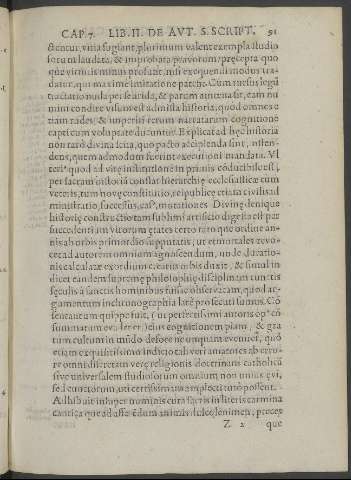 CAP 7. LIB. II. DE AVT. S. SCRIPT. 91
ctentur, vitia fugiant, plurimum valent exempla studio
sorum laudata, & improbata prauorum, precepta quo
que virtutis minus profunt, nisi exequendi modus tra-
datur, qui maxime imitatione patet. Cum rursus legū
tractatio nulla per se utilis, & parum amœna sit, eam nu
mini condire visum est admista historia, quod omnes e
tiam rudes, & imperiti rerum narratarum cognitione
capti cum voluptate ducuntur. Explicat ad hęc historia
non raro diuina scita, quo pacto accipienda sint, osten-
dens, quem admodum fuerint executioni mandata. Vl
terius quod ad vitę institutione in primis cōducibile est,
per sacram historia constat hierarchię ecclesiasticę cum
veteris, tum nouę constitutio, reipublicę etiam ciuilis ad
ministratio, successus, casus, mutationes. Diuinę denique
historię constructio tam sublimi artificio digesta est per
succedentium virorum ętates certo rato que ordine an-
nis ab orbis primordio supputatis, ut et mortales reuo-
cet ad autorem omnium agnoscendum, unde duratio-
nis calculatæ exordium creatus orbis duxit, & simul in
dicet eandem supremę philosophię disciplinam cunctis
sęculis à sanctis hominibus fuisse obseruatam, quod ar-
gumentum in chronographia late prosecuti sumus. Cō
sentaneum quippe fuit, ut perfectissimi autoris opus cō
summatum euaderet, eius cognitionem piam, & gra
tum cultum in mūdo defore nunquam euenit, quo
etiam exquisitissimo indicio tali veri amatores ab erro-
re omni discretam verę religionis doctrinam catholicā
siue vniuersalem studiosorum omnium non vnius eui,
sed cunctorum, uti certissimam amplecti tuto possent.
Adhibuit insuper numinis cura sacris in literis carmina
cantica que ad assecūdum animis dulcę lenimen, preces
Z 2 que